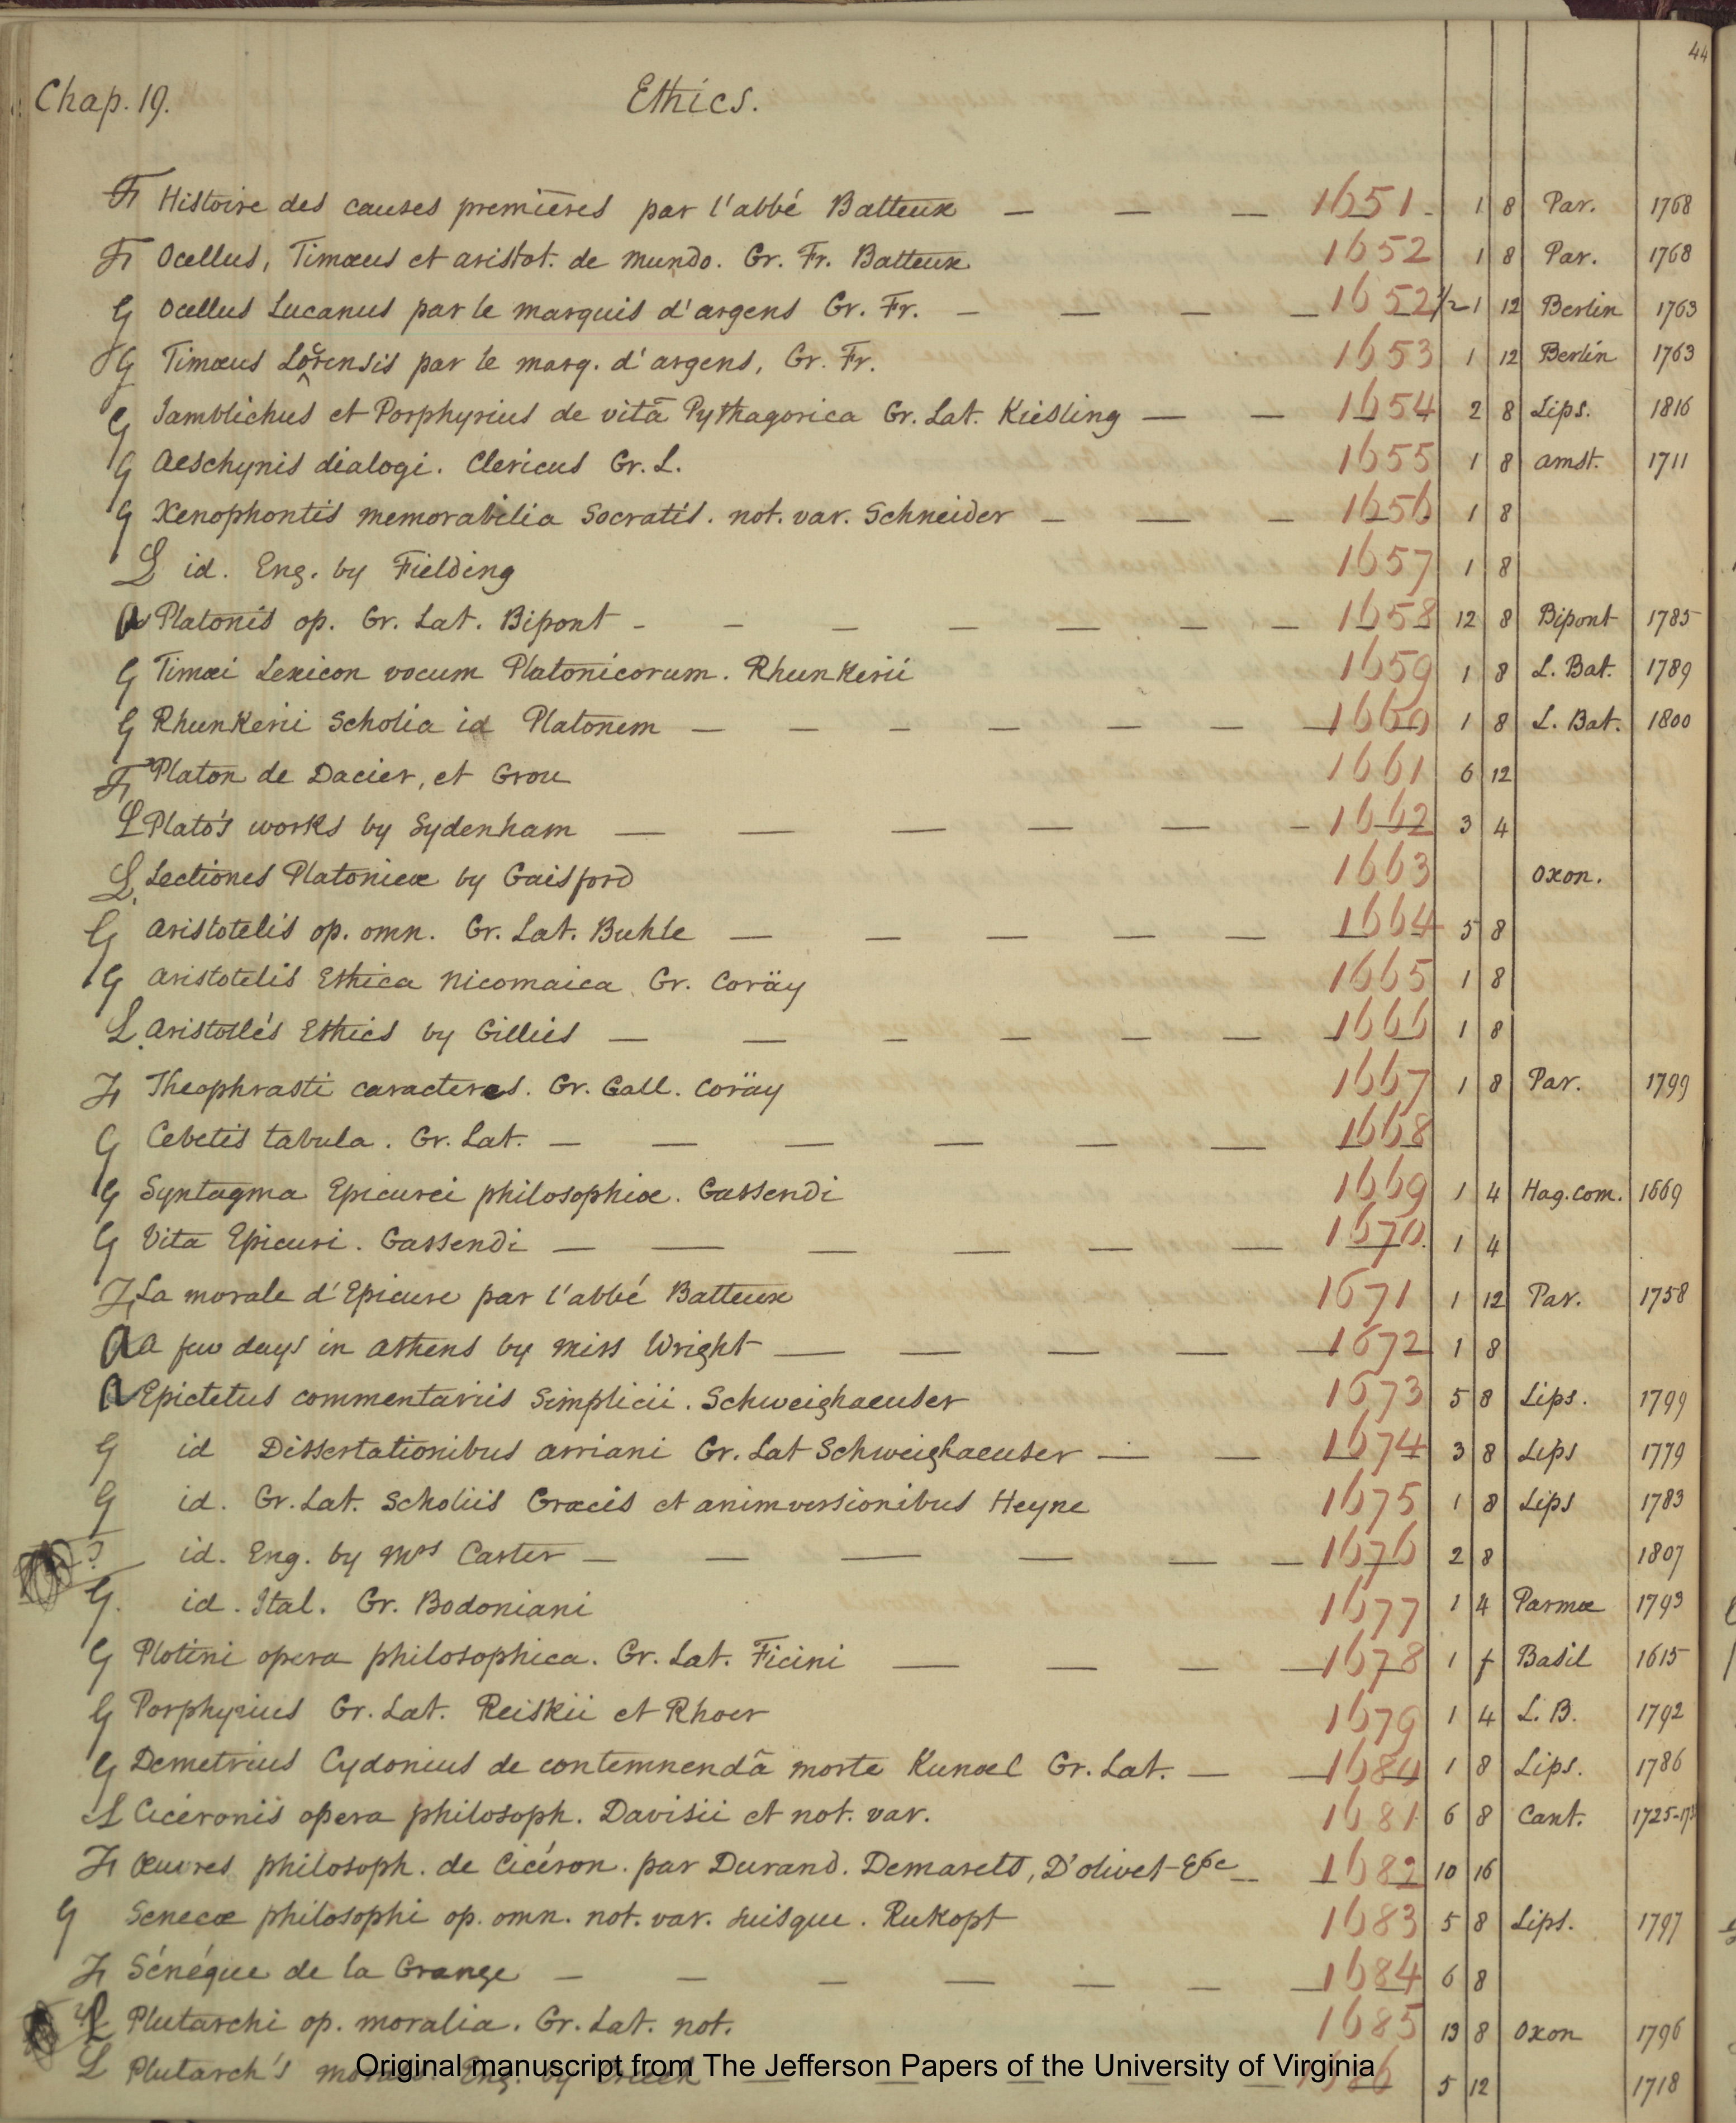 44
Chap. 19. Ethics.
F Histoire des causes premières par l'abbé Batteux — — — 1651. 1 8 Par. 1768
F Ocellus, Timæus et aristot. de mundo. Gr. Fr. Batteux 1652 1 8 Par. 1768
G Ocellus Lucanus par le marquis d'argens Gr. Fr. — — — — 1652½ 1 12 Berlin 1763
G Timæus Locrensis par le marq. d'argens, Gr. Fr. 1653 1 12 Berlin 1763
G Jamblichus et Porphyrius de vitâ Pythagorica Gr. Lat. Kiesling — — 1654 2 8 Lips. 1816
G Aeschynis dialogi. Clericus Gr. L. 1655 1 8 amst. 1711
G Xenophontis memorabilia Socratis. not. var. Schneider — — — 1656 1 8
L id. Eng. by Fielding 1657 1 8
A Platonis op. Gr. Lat. Bipont - — — — — — — 1658 12 8 Bipont 1785
G Timæi Lexicon vocum Platonicorum. Rhunkerii 1659 1 8 L. Bat. 1789
G Rhunkerii Scholia id Platonem — — — — — — — 1660 1 8 L. Bat. 1800
F Platon de Dacier, et Grou 1661 6 12
L Plato's works by Sydenham — — — — — — 1662 3 4
L. Lectiones Platonicæ by Gaisford 1663 Oxon.
G aristotelis op. omn. Gr. Lat. Buhle — — — — — 1664 5 8
G aristotelis Ethica Nicomaica Gr. Coräy 1665 1 8
L. aristotle's Ethics by Gillies — — — — — — 1666 1 8
F Theophrasti caracteres. Gr. Gall. Coräy 1667 1 8 Par. 1799
G Cebetis tabula. Gr. Lat. — — — — — — 1668
G Syntagma Epicurei philosophiæ. Gassendi 1669 1 4 Hag. com. 1669
G Vita Epicuri. Gassendi — — — — — — 1670. 1 4
F La morale d'Epicure par l'abbé Batteux 1671 1 12 Par. 1758
A a few days in athens by Miss Wright — — — — — 1672 1 8
A Epictetus commentariis Simplicii. Schweighaeuser 1673 5 8 Lips. 1799
G id Dissertationibus arriani Gr. Lat Schweighaeuser — — 1674 3 8 Lips 1779
G id. Gr. Lat. Scholiis Græcis et animversionibus Heyne 1675 1 8 Lips 1783
? id. Eng. by Mrs Carter — — — — — — 1676 2 8 1807
G. id. Ital. Gr. Bodoniani 1677 1 4 Parmæ 1793
G Plotini opera philosophica. Gr. Lat. Ficini — — — — 1678 1 f Basil 1615
G Porphyrius Gr. Lat. Reiskii et Rhoer 1679 1 4 L. B. 1792
G Demetrius Cydonius de contemnendâ morte Kunoel Gr. Lat. — — 1680 1 8 Lips. 1786
L Cicéronis opera philosoph. Davisii et not. var. 1681 6 8 Cant. 1725-
F Œuvres philosoph. de Cicéron. par Durand. Demarets, D'olivet &c — 1682 10 16
G Senecæ philosophi op. omn. not. var. suisque. Rukopt 1683 5 8 Lips. 1797
F Sénéque de la Grange — — — — — — — 1684 6 8
L Plutarchi op. moralia. Gr. Lat. not. 1685 13 8 Oxon 1796
L Plutarch's Eng. by — — — — — 1686 5 12 1718
Original manuscript from The Jefferson Papers of the University of Virginia